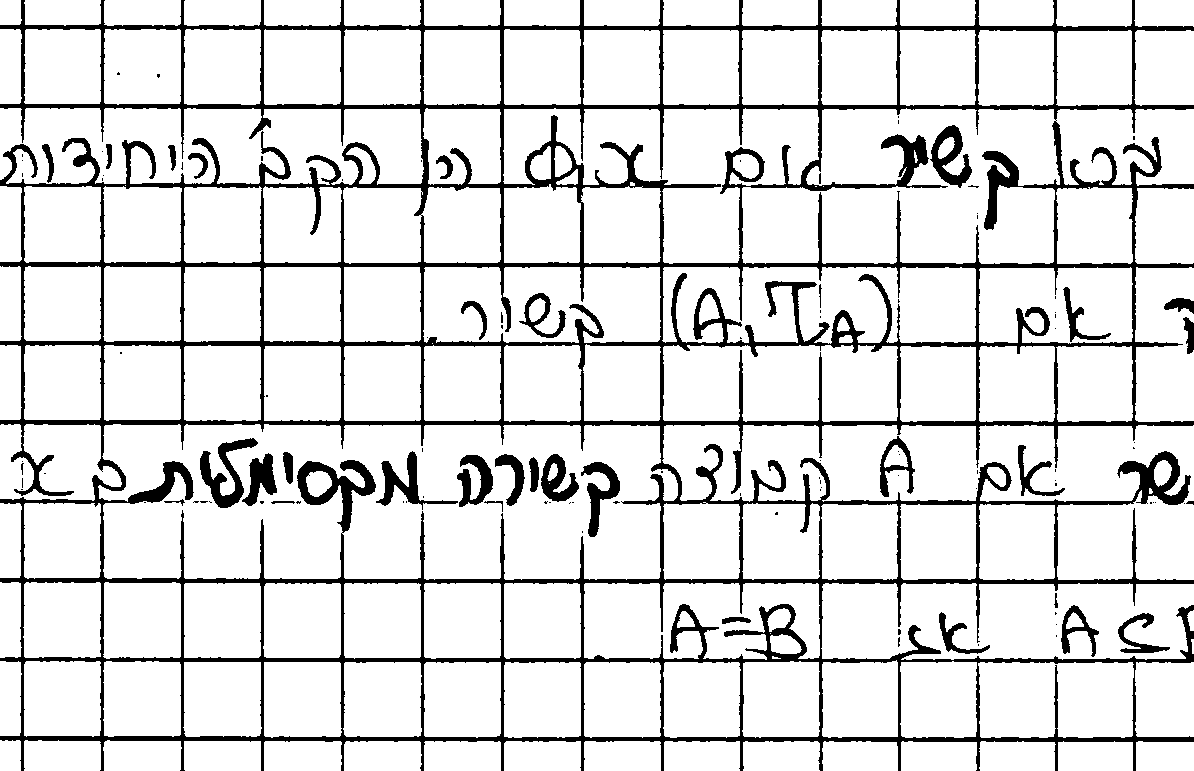 קשיר אם X,∅ הן הקב' היחידות
אם (A,τ_A) קשיר.
שיר אם A קבוצה קשירה מקסימלית ב X
A⊆ אז A=B